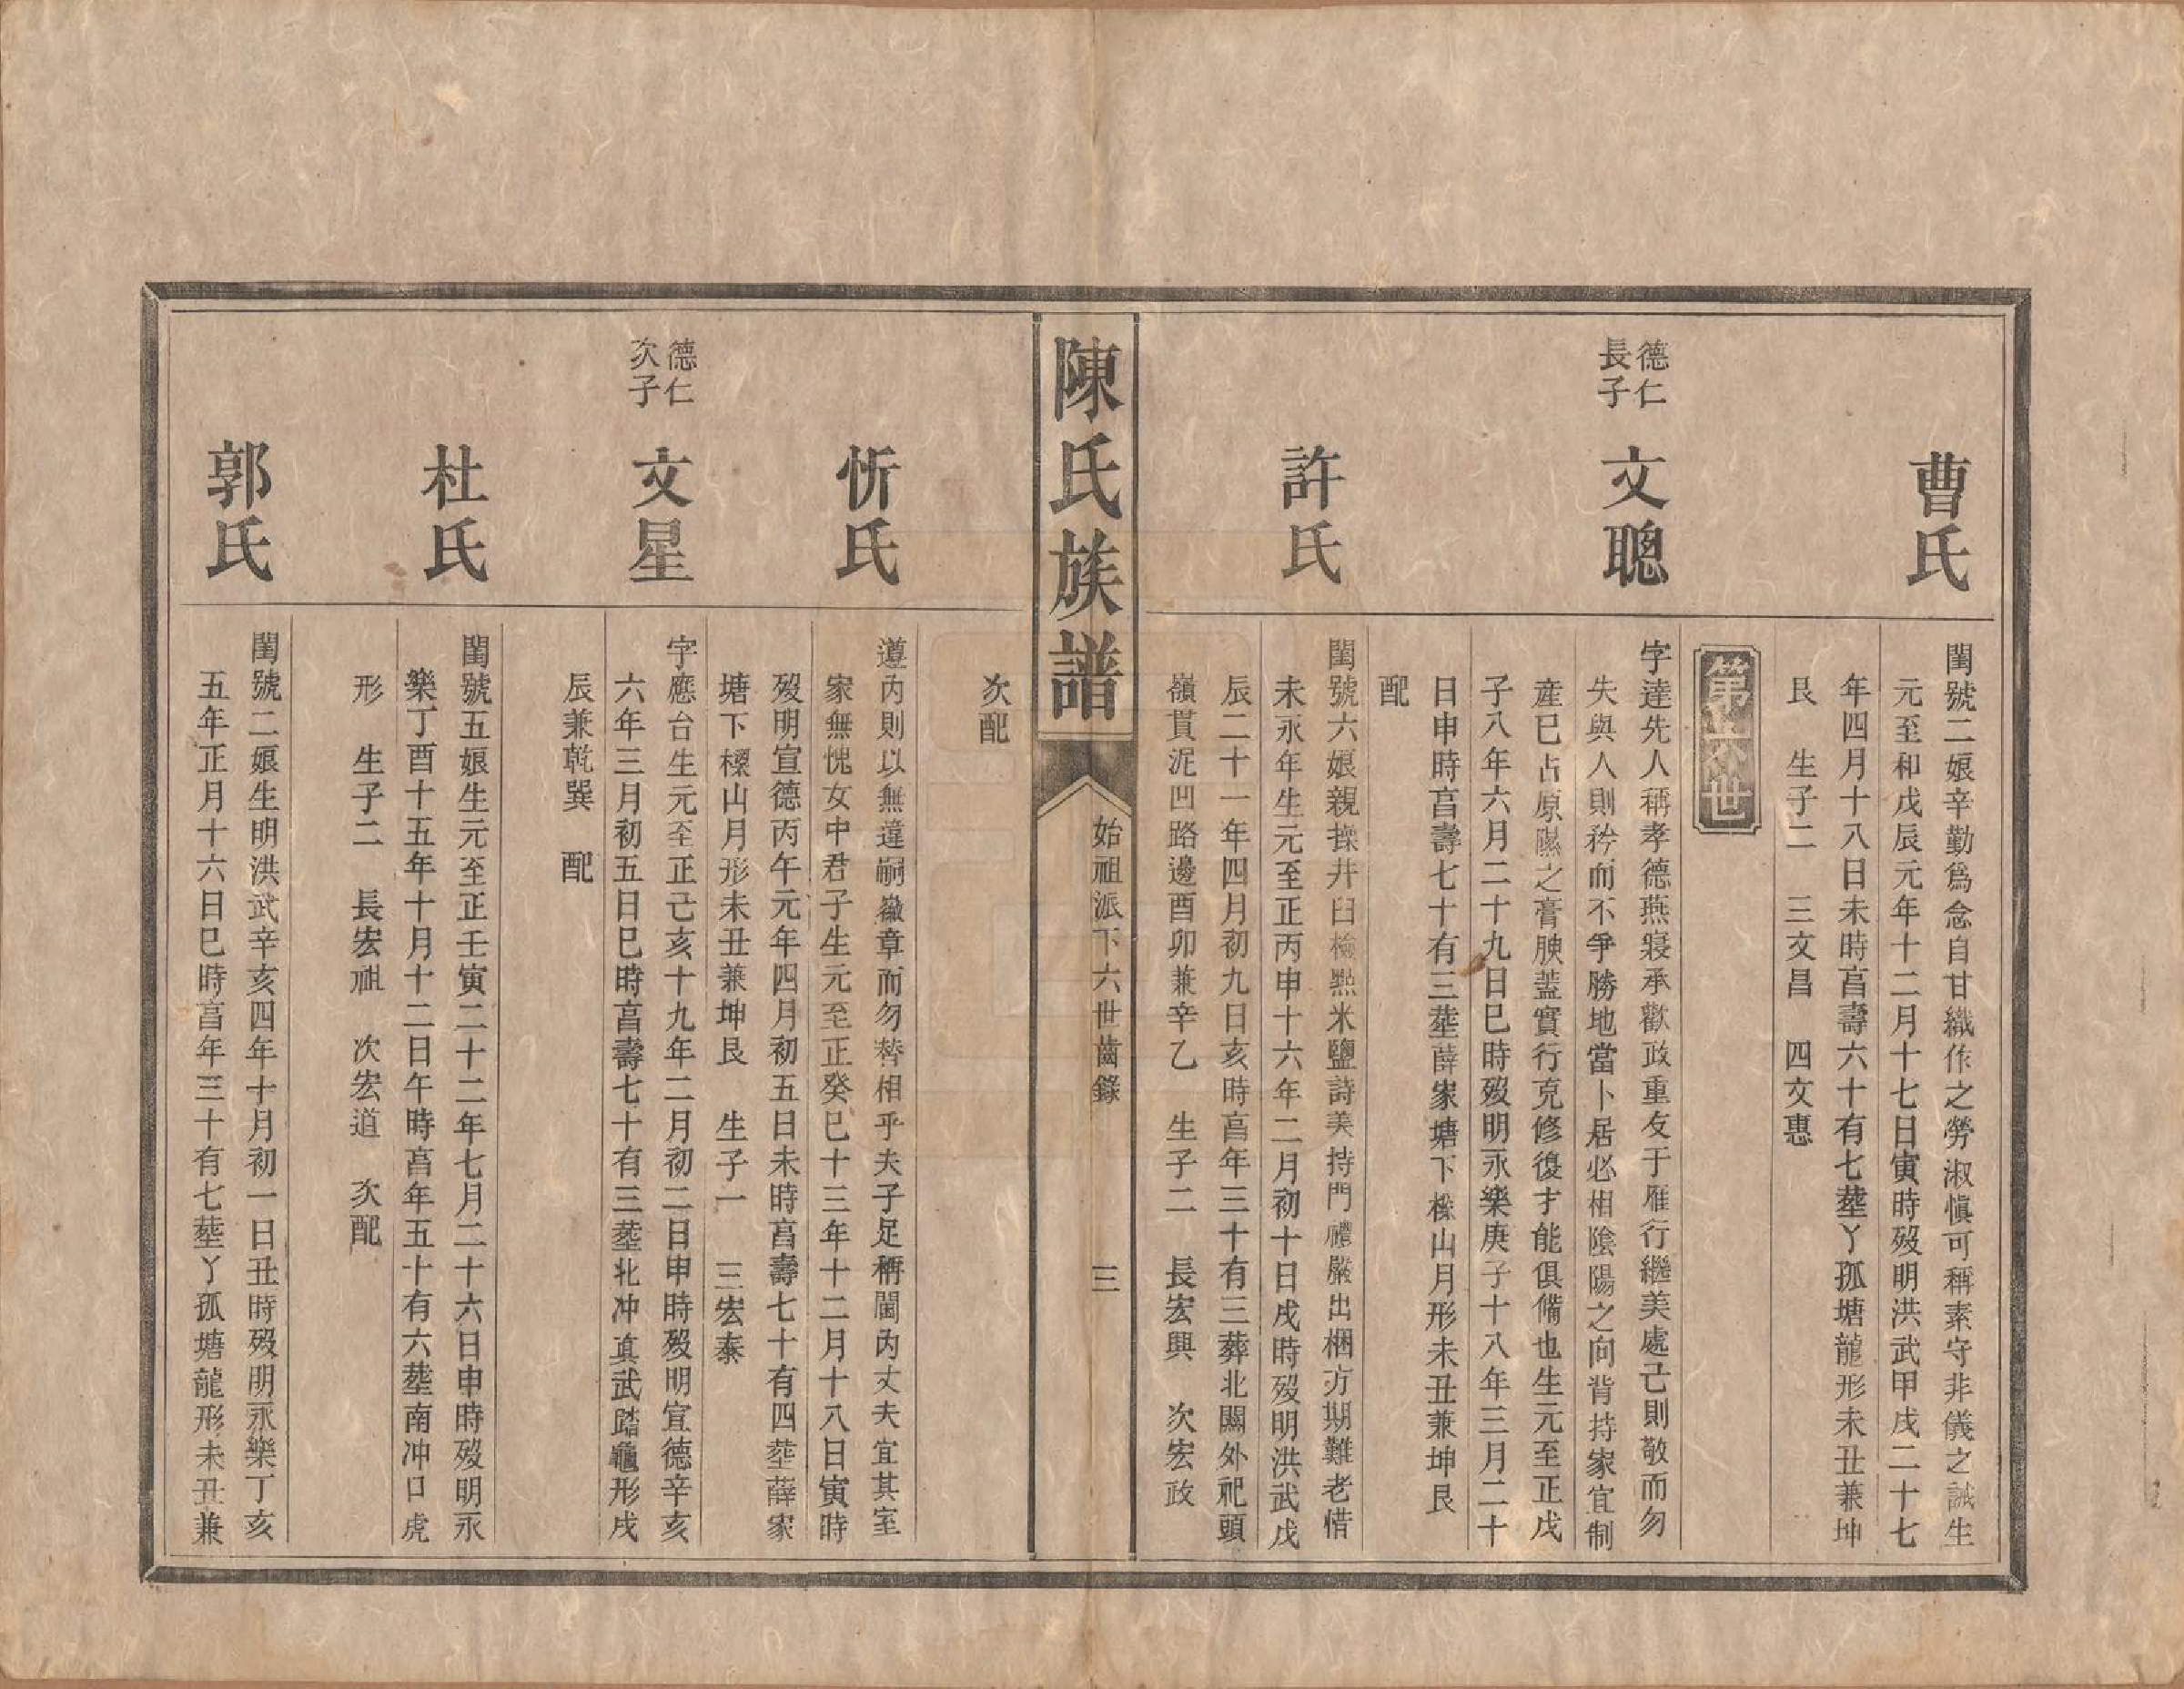 曹氏
閨號二娘辛勤爲念自甘織作之勞淑慎可稱素守非儀之誠生
元至和戊辰元年十二月十七日寅時歿明洪武甲戌二十七
年四月十八日未時亯壽六十有七塟丫孤塘龍形未丑兼坤
艮 生子二 三文昌 四文惠
第六世
德仁
長子
文聰
字達先人稱孝德燕寢承歡政重友于雁行繼美處己則敬而勿
失與人則矜而不爭勝地當卜居必相陰陽之向背持家宜制
産已占原隰之膏腴蓋實行克修復才能俱備也生元至正戊
子八年六月二十九日巳時歿明永樂庚子十八年三月二十
日申時亯壽七十有三塟薛家塘下檪山月形未丑兼坤艮
配
許氏
閨號六娘親操井臼檢㸃米鹽詩美持門禮嚴出梱方期難老惜
未永年生元至正丙申十六年二月初十日戌時歿明洪武戊
辰二十一年四月初九日亥時亯年三十有三葬北關外祀頭
嶺貫泥凹路邊酉卯兼辛乙 生子二 長宏興 次宏政
陳氏族譜
始祖派下六世齒錄
三
次配
忻氏
遵內則以無違嗣徽章而勿替相乎夫子足稱閫內丈夫宜其室
家無愧女中君子生元至正癸巳十三年十二月十八日寅時
歿明宣德丙午元年四月初五日未時亯壽七十有四塟薛家
塘下檪山月形未丑兼坤艮 生子一 三宏泰
德仁
次子
文星
字應台生元至正己亥十九年二月初二日申時歿明宣德辛亥
六年三月初五日巳時亯壽七十有三塟北冲真武踏龜形戌
辰兼乾巽 配
杜氏
閨號五娘生元至正壬寅二十二年七月二十六日申時歿明永
樂丁酉十五年十月十二日午時亯年五十有六塟南冲口虎
形 生子二 長宏祖 次宏道 次配
郭氏
閨號二娘生明洪武辛亥四年十月初一日丑時歿明永樂丁亥
五年正月十六日巳時亯年三十有七塟丫孤塘龍形未丑兼